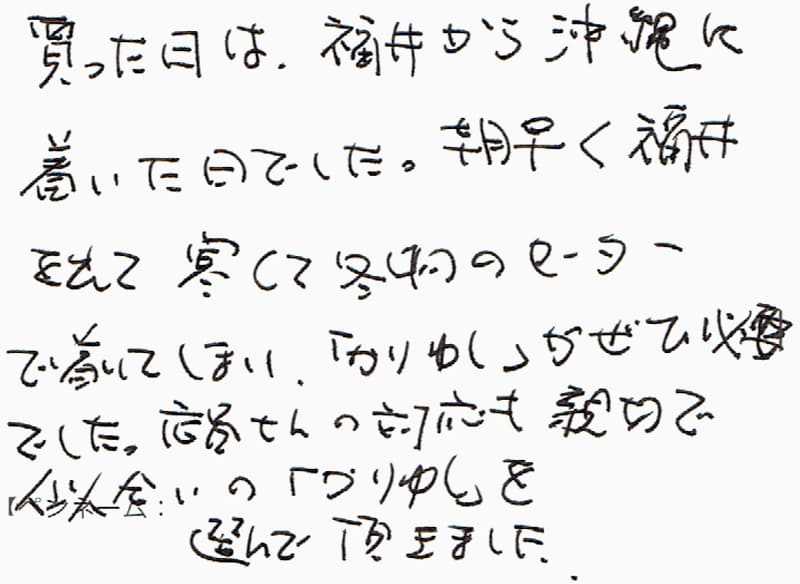 買った日は、福井から沖縄に
着いた日でした。朝早く福井
を出て寒くて冬物のセーター
で着いてしまい、「かりゆし」がぜひ必要
でした。店員さんの対応も親切で
似合いの「かりゆし」を
【ペンネーム：
選んで頂きました。